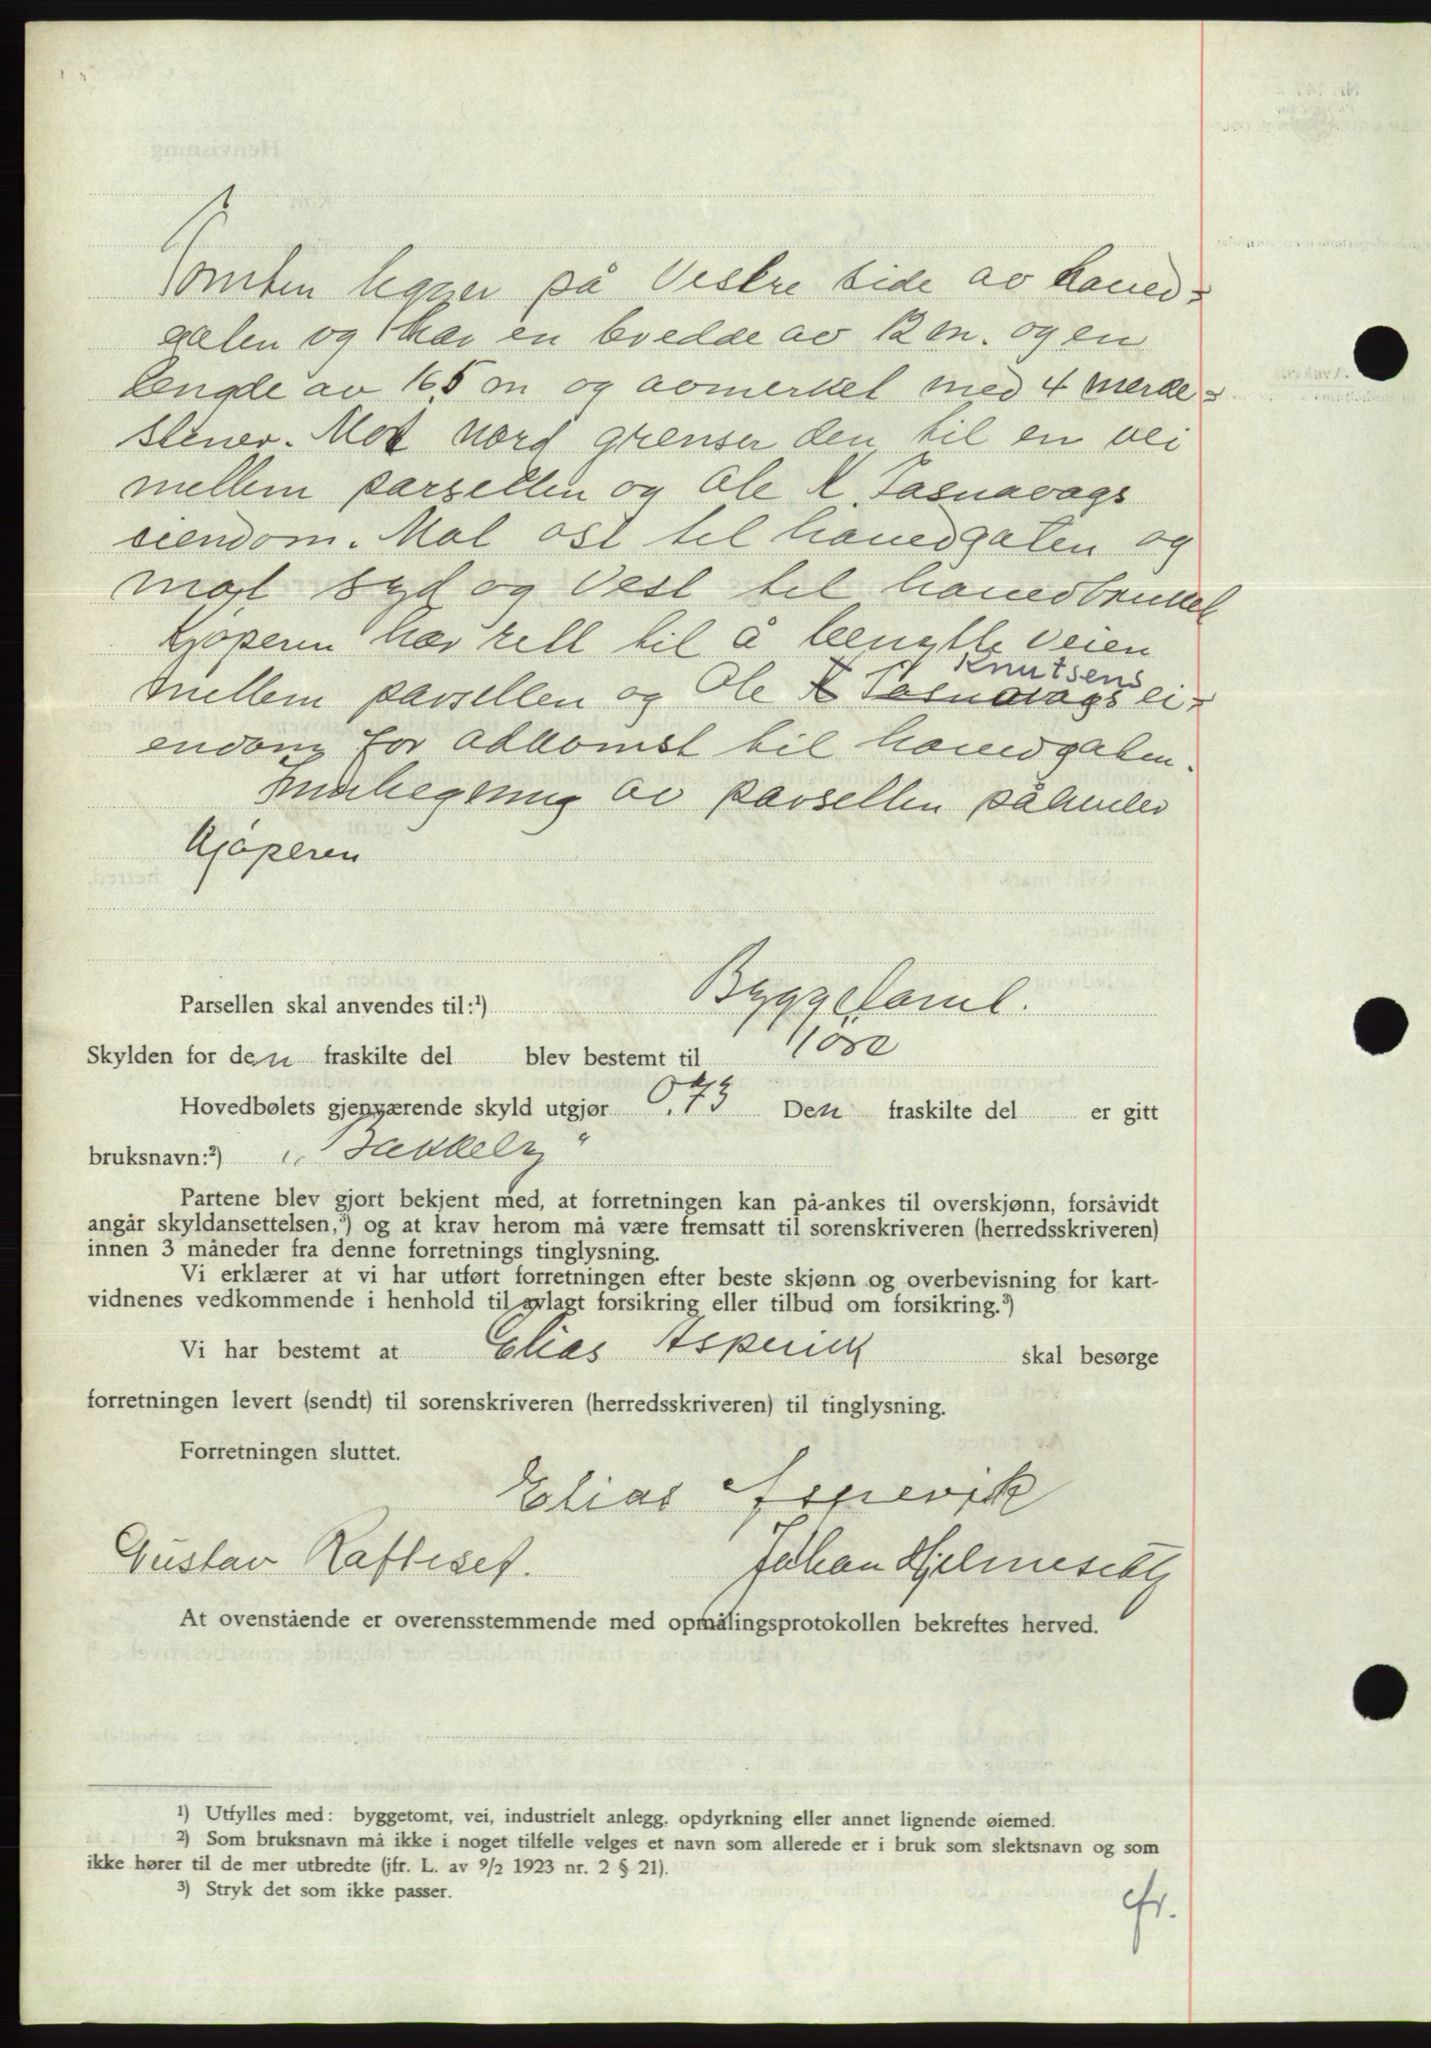 Tomten ligger på Vestre side av hoved-
gaten og har en bredde av 12 m. og en
lengde av 16,5 m og avmerket med 4 merke-
stener. Mot nord grenser den til en vei
mellem parsellen og Ole K. Fosnavags
eiendom. Mot ost til hovedgaten og
mot syd og Vest til hovedbruket
Kjøperen har rett til å benytte veien
mellem parsellen og Ole K Fosnavags Knutsens ei-
endom for adkomst til hovedgaten.
Innhegning av parsellen påhviler
Kjøperen
Parsellen skal anvendes til:¹) Byggetomt.
Skylden for den fraskilte del blev bestemt til 1 øre
Hovedbølets gjenværende skyld utgjør 0,73 Den fraskilte del er gitt
bruksnavn:²) „Bakkely"
Partene blev gjort bekjent med, at forretningen kan på-ankes til overskjønn, forsåvidt
angår skyldansettelsen,³) og at krav herom må være fremsatt til sorenskriveren (herredsskriveren)
innen 3 måneder fra denne forretnings tinglysning.
Vi erklærer at vi har utført forretningen efter beste skjønn og overbevisning for kart-
vidnenes vedkommende i henhold til avlagt forsikring eller tilbud om forsikring.³)
Vi har bestemt at Elias Aspevik skal besørge
forretningen levert (sendt) til sorenskriveren (herredsskriveren) til tinglysning.
Forretningen sluttet.
Elias Aspevik
Gustav Rafteset. Johan Hjelmeseth
At ovenstående er overensstemmende med opmålingsprotokollen bekreftes herved.
¹) Utfylles med: byggetomt, vei, industrielt anlegg, opdyrkning eller annet lignende øiemed.
²) Som bruksnavn må ikke i noget tilfelle velges et navn som allerede er i bruk som slektsnavn og som
ikke hører til de mer utbredte (jfr. L. av 9/2 1923 nr. 2 § 21).
³) Stryk det som ikke passer.
cfr.